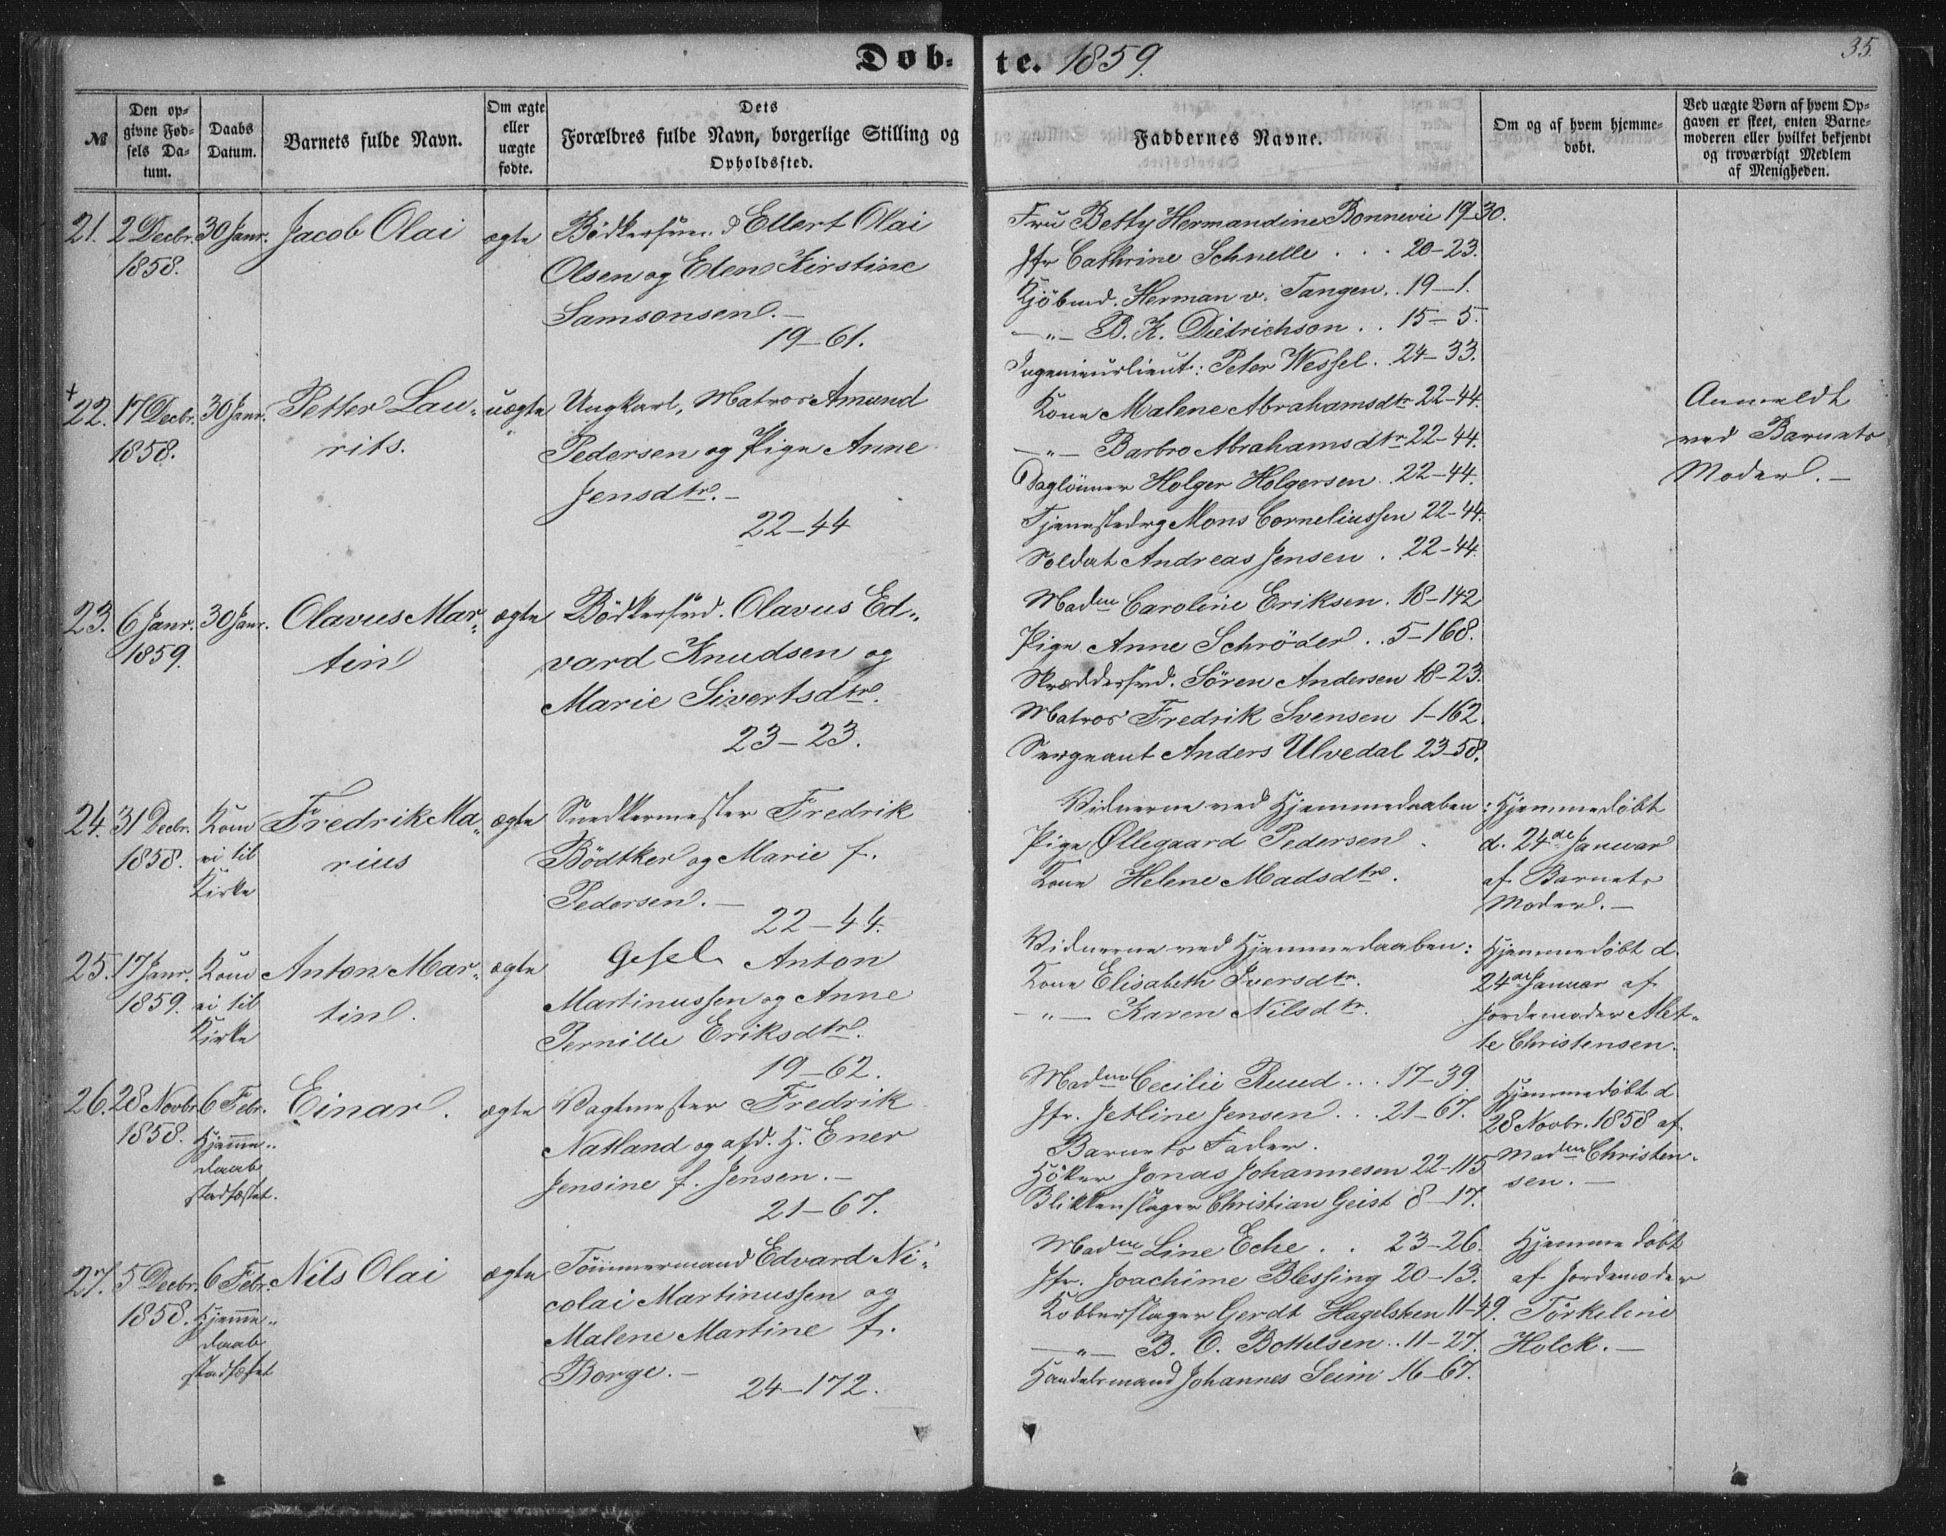 Døb-te. 1859.
35.
№
Den op-
givne Fød-
sels Da-
tum.
Daabs
Datum.
Barnets fulde Navn.
Om ægte
eller
uægte
fødte.
Dets
Forældres fulde Navn, borgerlige Stilling og
Opholdssted.
Faddernes Navne.
Om og af hvem hjemme-
døbt.
Ved uægte Børn af hvem Op-
gaven er skeet, enten Barne-
moderen eller hvilket bekjendt
og troværdigt Medlem
af Menigheden.
21.
2 Decbr.
1858.
30 Janr.
Jacob Olai
ægte
Bødkersvend Ellert Olai
Olsen og Elen Kirstine
Samsonsen.—
19–61.
Fru Betty Hermandine Bonnevie 19–30.
Jfr Cathrine Schnelle . . . 20–23.
Kjøbmd. Herman v. Tangen. . 19–1.
—„— B. K. Dietrichson . . 15–5.
Ingenieurlieut: Peter Wessel . 24–33.
†
22.
17 Decbr.
1858.
30 Janr.
Petter Lau-
rits.
uægte
Ungkarl, Matros Amund
Pedersen og Pige Anne
Jensdtr.—
22–44
Kone Malene Abrahamsdtr 22–44.
—„— Barbro Abrahamsdtr 22–44.
Daglønner Holger Holgersen . 22–44.
Tjenestedrg Mons Corneliussen 22–44.
Soldat Andreas Jensen . 22–44.
Anmeldt
ved Barnets
Moder.—
23.
6 Janr.
1859.
30 Janr.
Olavus Mar-
tin
ægte
Bødkersvd. Olavus Ed-
vard Knudsen og
Marie Sivertsdtr.
23–23.
Madme Caroline Eriksen . 18–142
Pige Anne Schrøder . . 5–168.
Skræddersvd. Sören Andersen 18–23.
Matros Fredrik Svensen 1–162.
Sergeant Anders Ulvedal 23–58.
24.
31 Decbr.
1858.
Kom
ei til
Kirke
Fredrik Ma-
rius
ægte
Snedkermester Fredrik
Bödtker og Marie f.
Pedersen.—
22–44.
Vidnerne ved Hjemmedaaben:
Pige Øllegaard Pedersen .
Kone Helene Madsdtr.
Hjemmedøbt
d. 24de Januar
af Barnets
Moder.—
25.
17 Janr.
1859.
Kom
ei til
Kirke
Anton Mar-
tin.
ægte
Gesel Anton
Martinussen og Anne
Pernille Eriksdtr.
19–62.
Vidnerne ved Hjemmedaaben:
Kone Elisabeth Iversdtr.
—„— Karen Nilsdtr.
Hjemmedøbt d.
24de Januar af
Jordemoder Alet-
te Christensen.
26.
28 Novbr
1858.
6 Febr.
Hjemme-
daab
stadfæstet.
Einar.
ægte
Vagtmester Fredrik
Natland og afd. H. Ener
Jensine f. Jensen.—
21–67.
Madme Cecilie Ruud . . . 17–39.
Jfr. Jetline Jensen . . . 21–67.
Barnets Fader.
Höker Jonas Johannesen 22–115
Blikkenslager Christian Geist 8–17.
Hjemmedøbt d.
28 Novbr. 1858 af
Madme Christen-
sen.—
27.
5 Decbr.
1858.
6 Febr.
Hjemme-
daab
stadfæstet
Nils Olai
ægte
Tömmermand Edvard Ni-
colai Martinussen og
Malene Martine f.
Borge.—
24–172.
Madme Line Eche . . 23–26.
Jfr. Joachime Blessing 20–13.
Kobberslager Gerdt Hagelsteen 11–49.
—„— B. O. Bottelsen . . 11–27.
Handelsmand Johannes Seim 16–67.
Hjemmedøbt
af Jordemoder
Törkeline
Holck.—